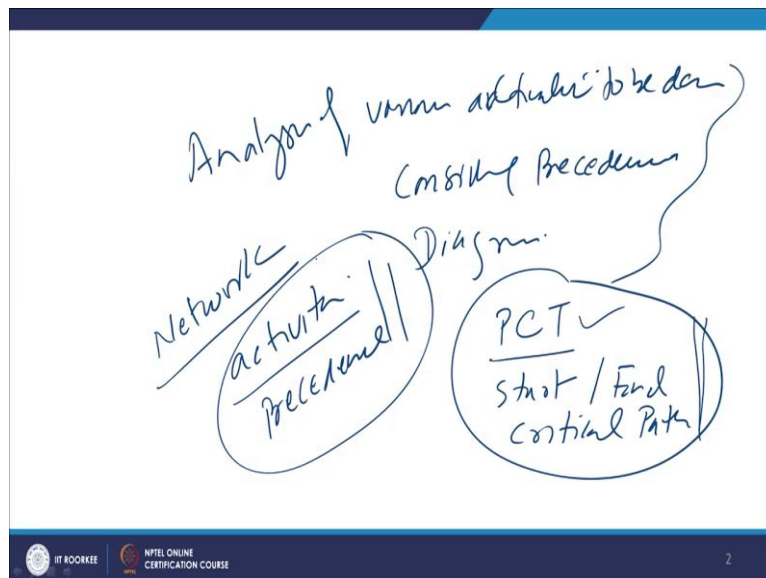 Analysis of various activities to be done
Considering Precedence
Diagram.
Network
activities
Precedence
PCT ✓
Start / End
Critical Path
IIT ROORKEE
NPTEL ONLINE
CERTIFICATION COURSE
2